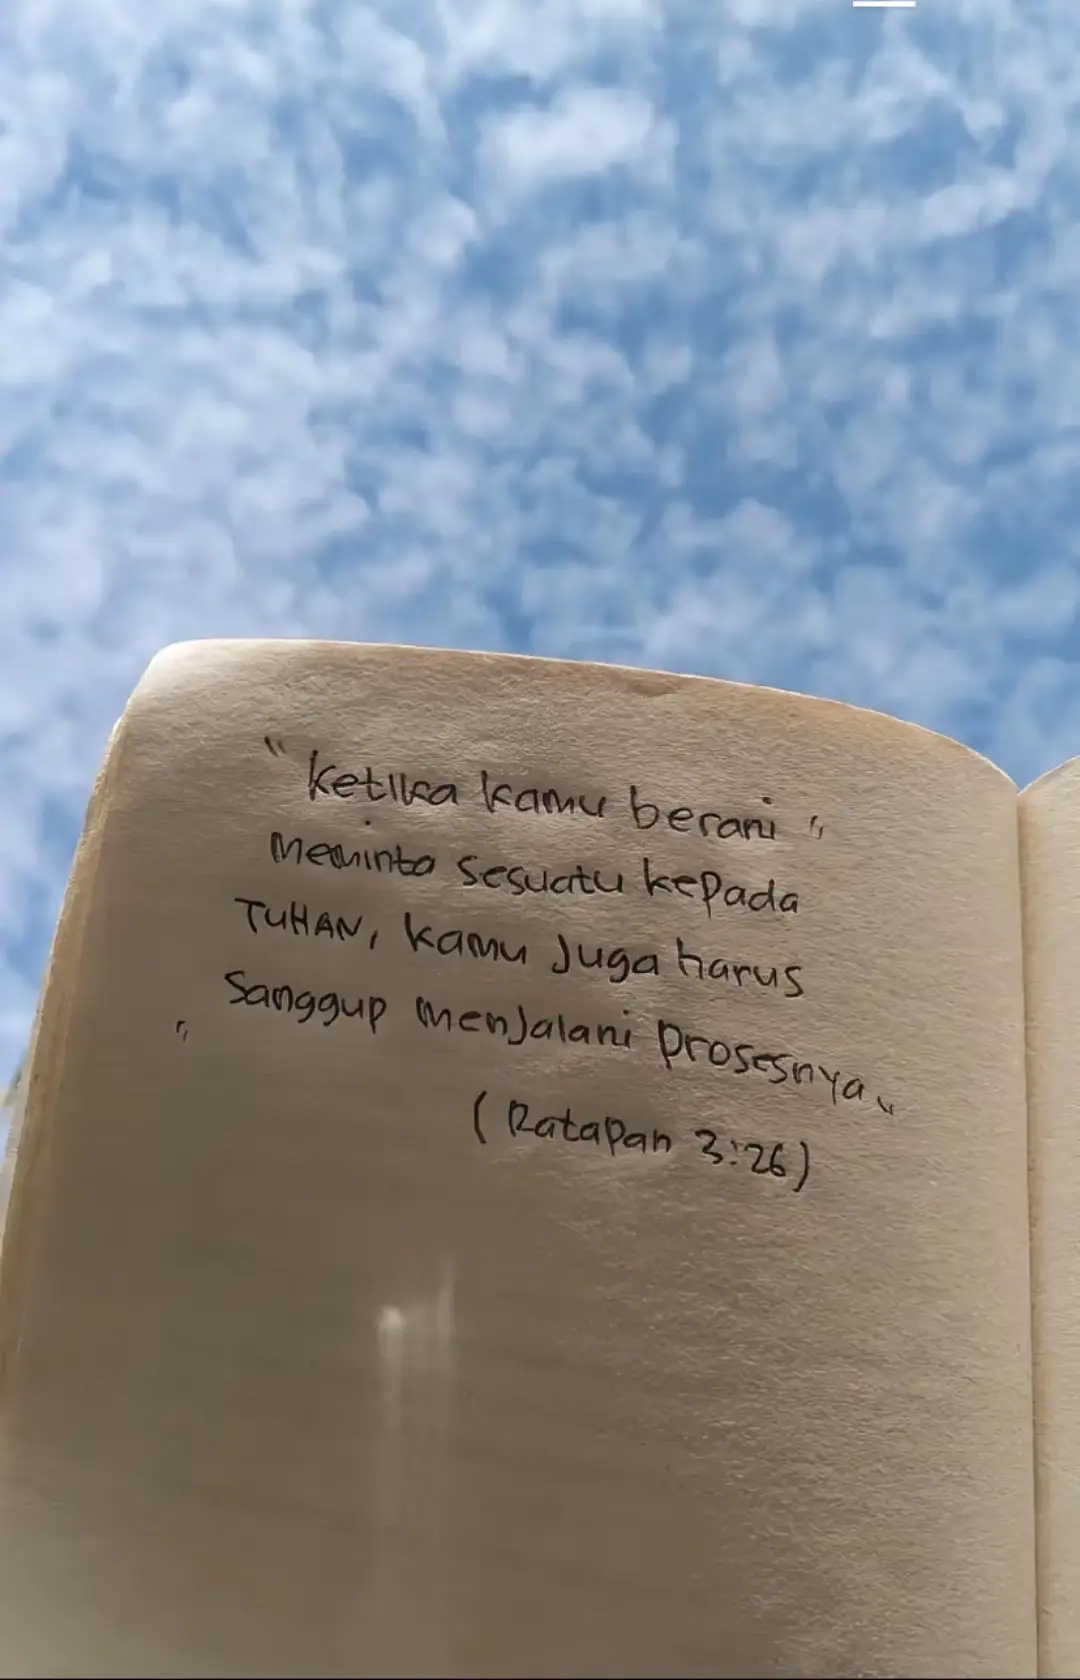 "Ketika kamu berani "
meminta sesuatu kepada
TUHAN, kamu Juga harus
" Sanggup menJalani prosesnya"
(Ratapan 3:26)